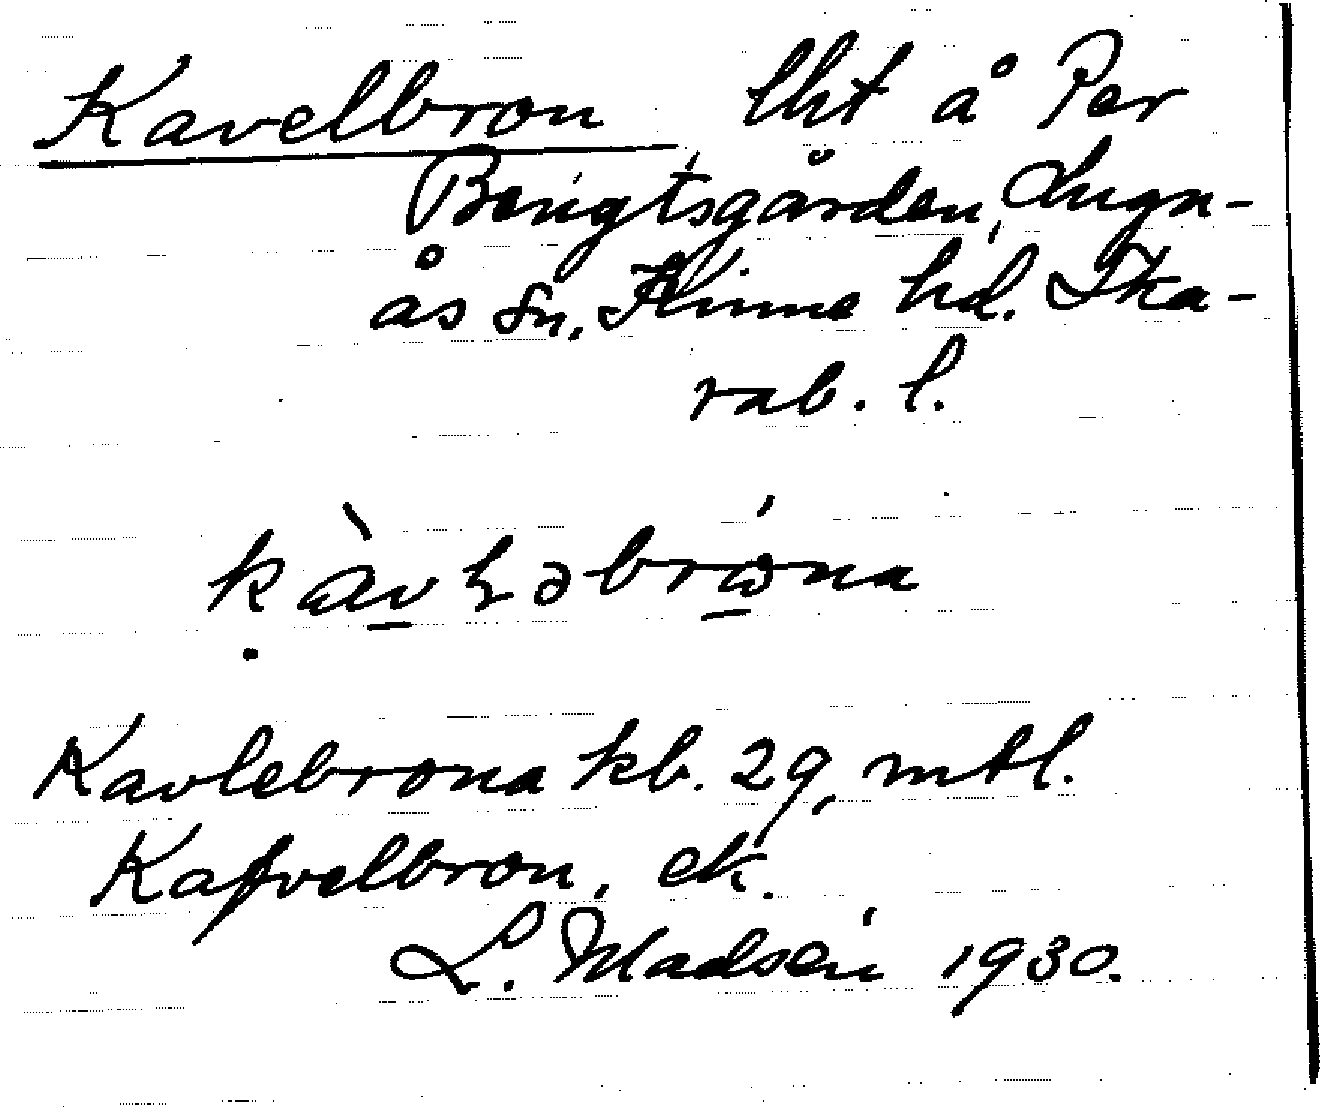 Kavelbron lht å Per
Bengtsgården, Lugn-
ås sn, Kinne hd. Ska-
rab. l.
kàvꝉəbrǿna
Kavlebrona kb. 29, mtl.
Kafvelbron, ek.
L. Madsén 1930.